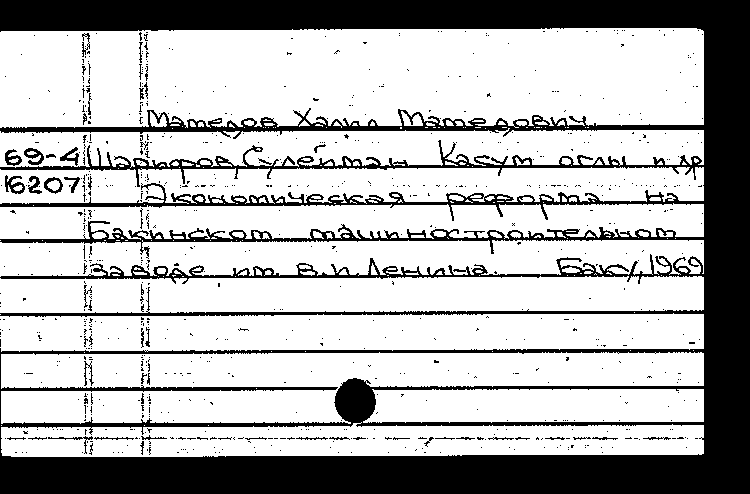 Мамедов, Халил Мамедович.
69-4 Шарифов, Сулейман Касум оглы и др.
16207 Экономическая реформа на
Бакинском машиностроительном
заводе им. В.И. Ленина. Баку, 1969